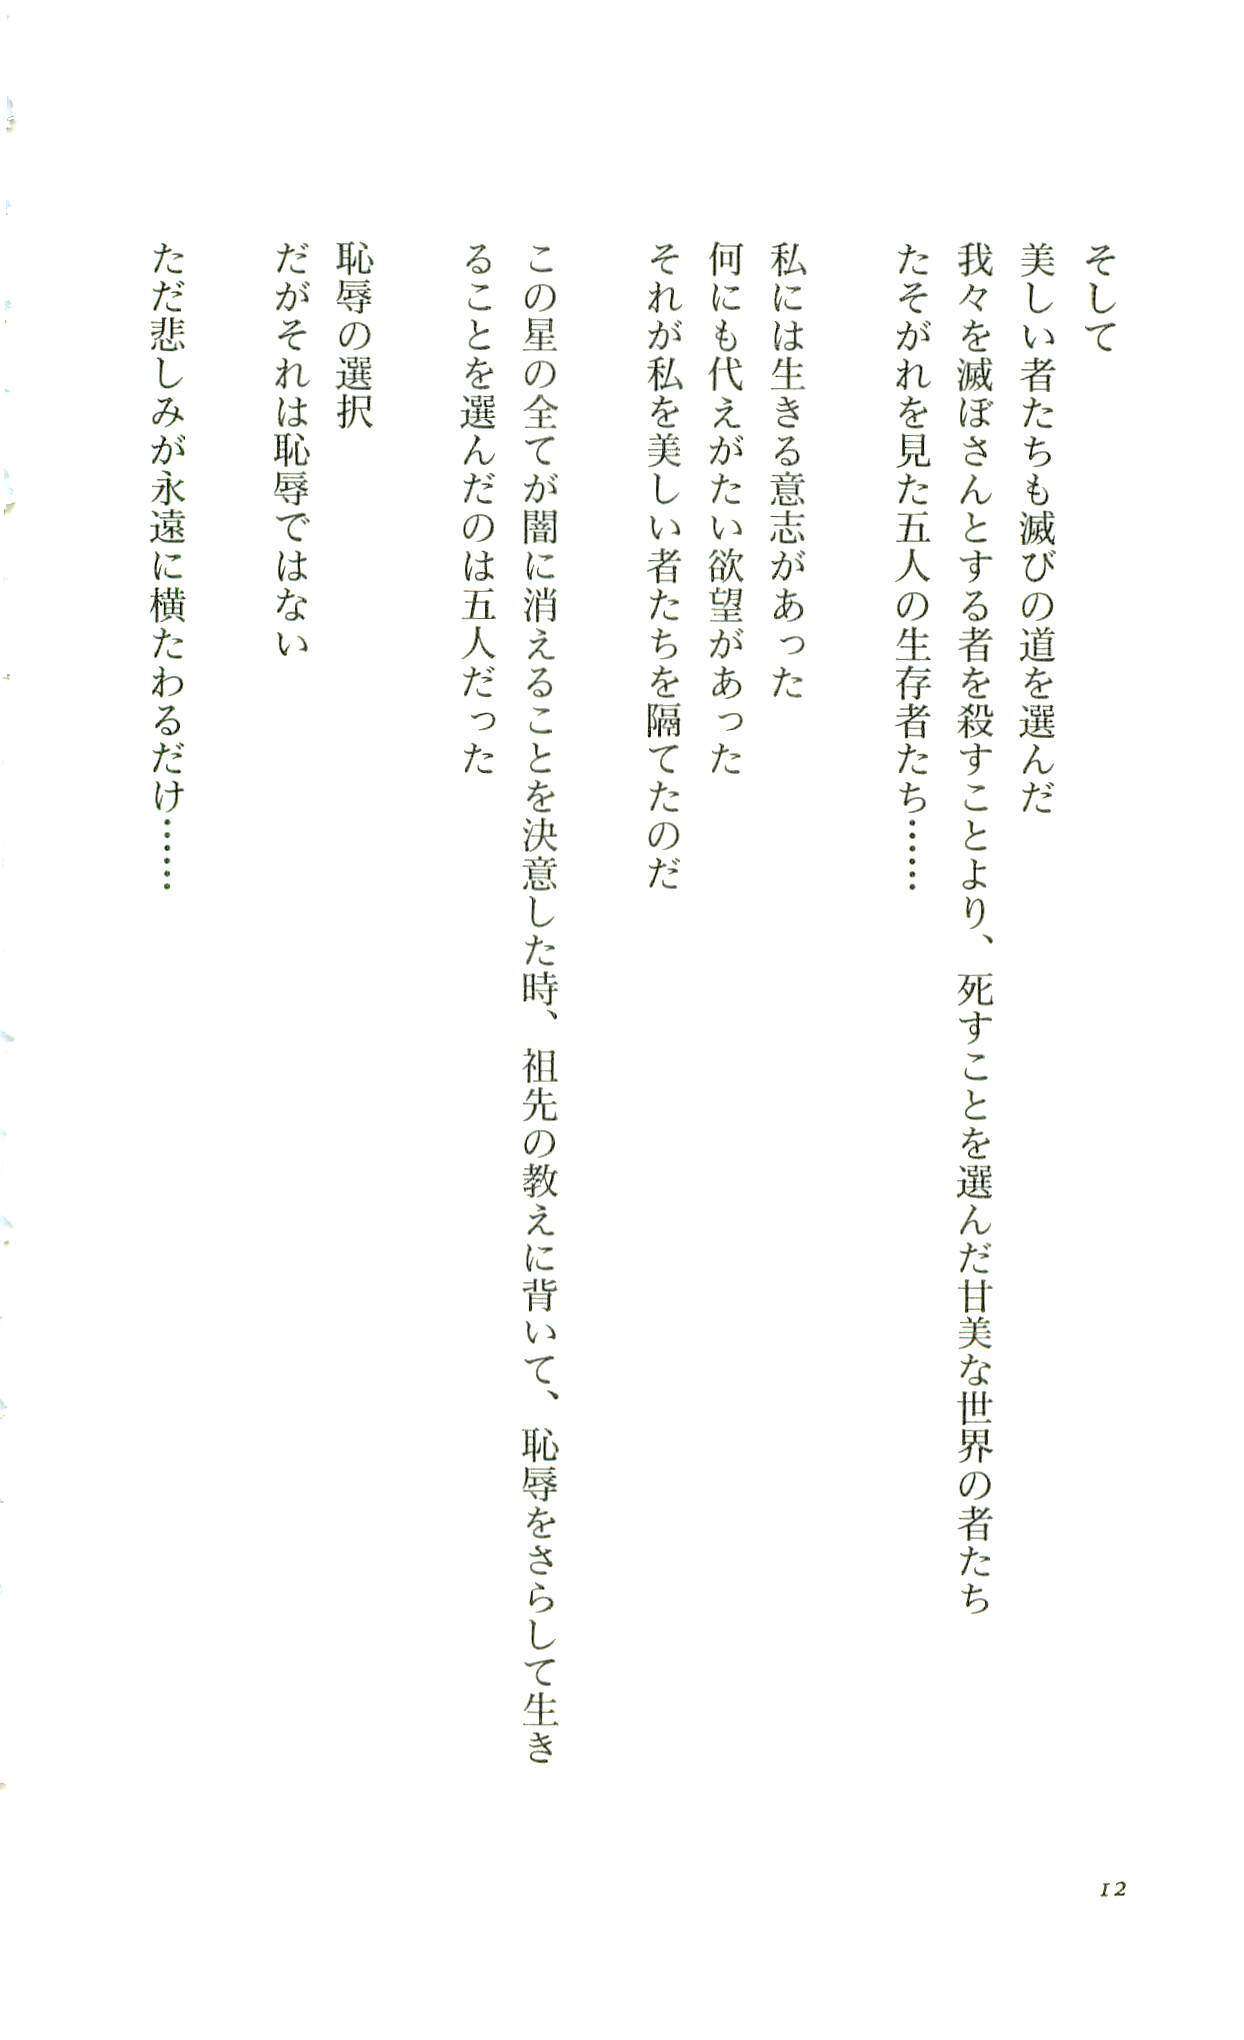 そして
美しい者たちも滅びの道を選んだ
我々を滅ぼさんとする者を殺すことより、死すことを選んだ甘美な世界の者たち
たそがれを見た五人の生存者たち……
私には生きる意志があった
何にも代えがたい欲望があった
それが私を美しい者たちを隔てたのだ
この星の全てが闇に消えることを決意した時、祖先の教えに背いて、恥辱をさらして生き
ることを選んだのは五人だった
恥辱の選択
だがそれは恥辱ではない
ただ悲しみが永遠に横たわるだけ……
12